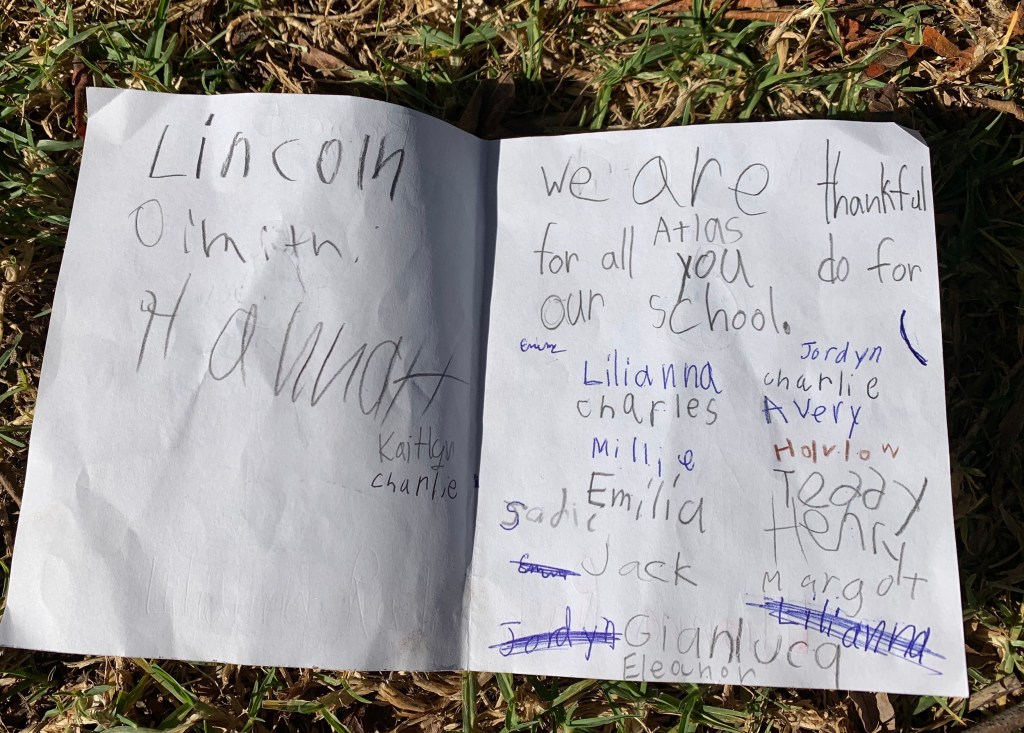 Lincoln
Dimitri
Hannah
Kaitlyn
charlie
we are thankful
Atlas
for all you do for
our school.
Jordyn
Lilianna charlie
charles Avery
Millie Harlow
Emilia Teddy
Sadie Henry
Jack Margot
Lilianna
Jordyn Gianluca
Eleanor